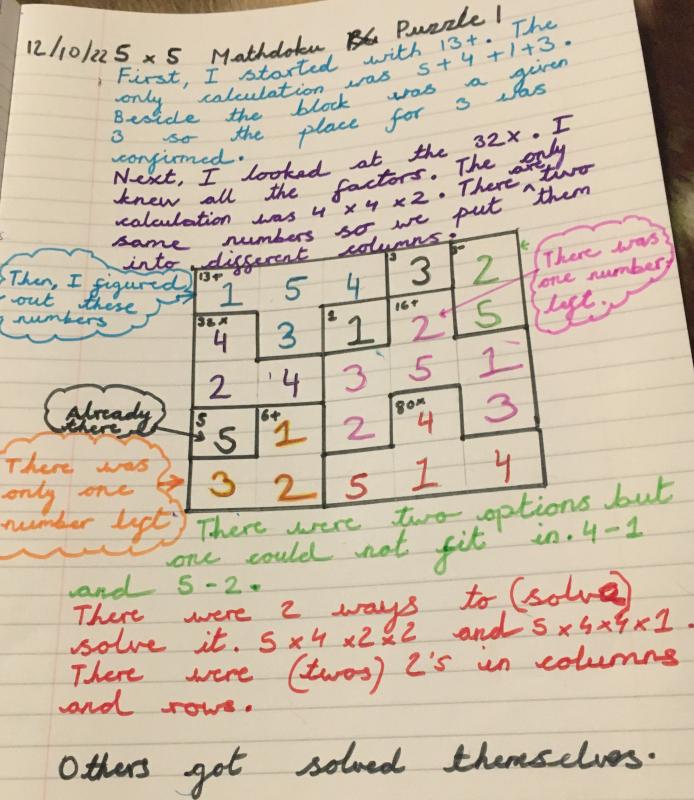 12/10/22 5 x 5 Mathdoku Puzzle 1
First, I started with 13+. The
only calculation was 5+4+1+3.
Beside the block was a given
3 so the place for 3 was
confirmed.
Next, I looked at the 32x. I
knew all the factors. The only
calculation was 4 x 4 x 2. There are two
same numbers so we put them
into different columns.
Then, I figured
out these
numbers
There was
one number
left.
13+ 1 5 4 3 3 2
32x 4 3 1 1 16+ 2 5
2 4 3 5 1
Already
there
5 5 6+ 1 2 80x 4 3
There was
only one
number left
3 2 5 1 4
There were two options but
one could not fit in. 4-1
and 5-2.
There were 2 ways to (solve)
solve it. 5x4x2x2 and 5x4x4x1.
There were (twos) 2's in columns
and rows.
Others got solved themselves.